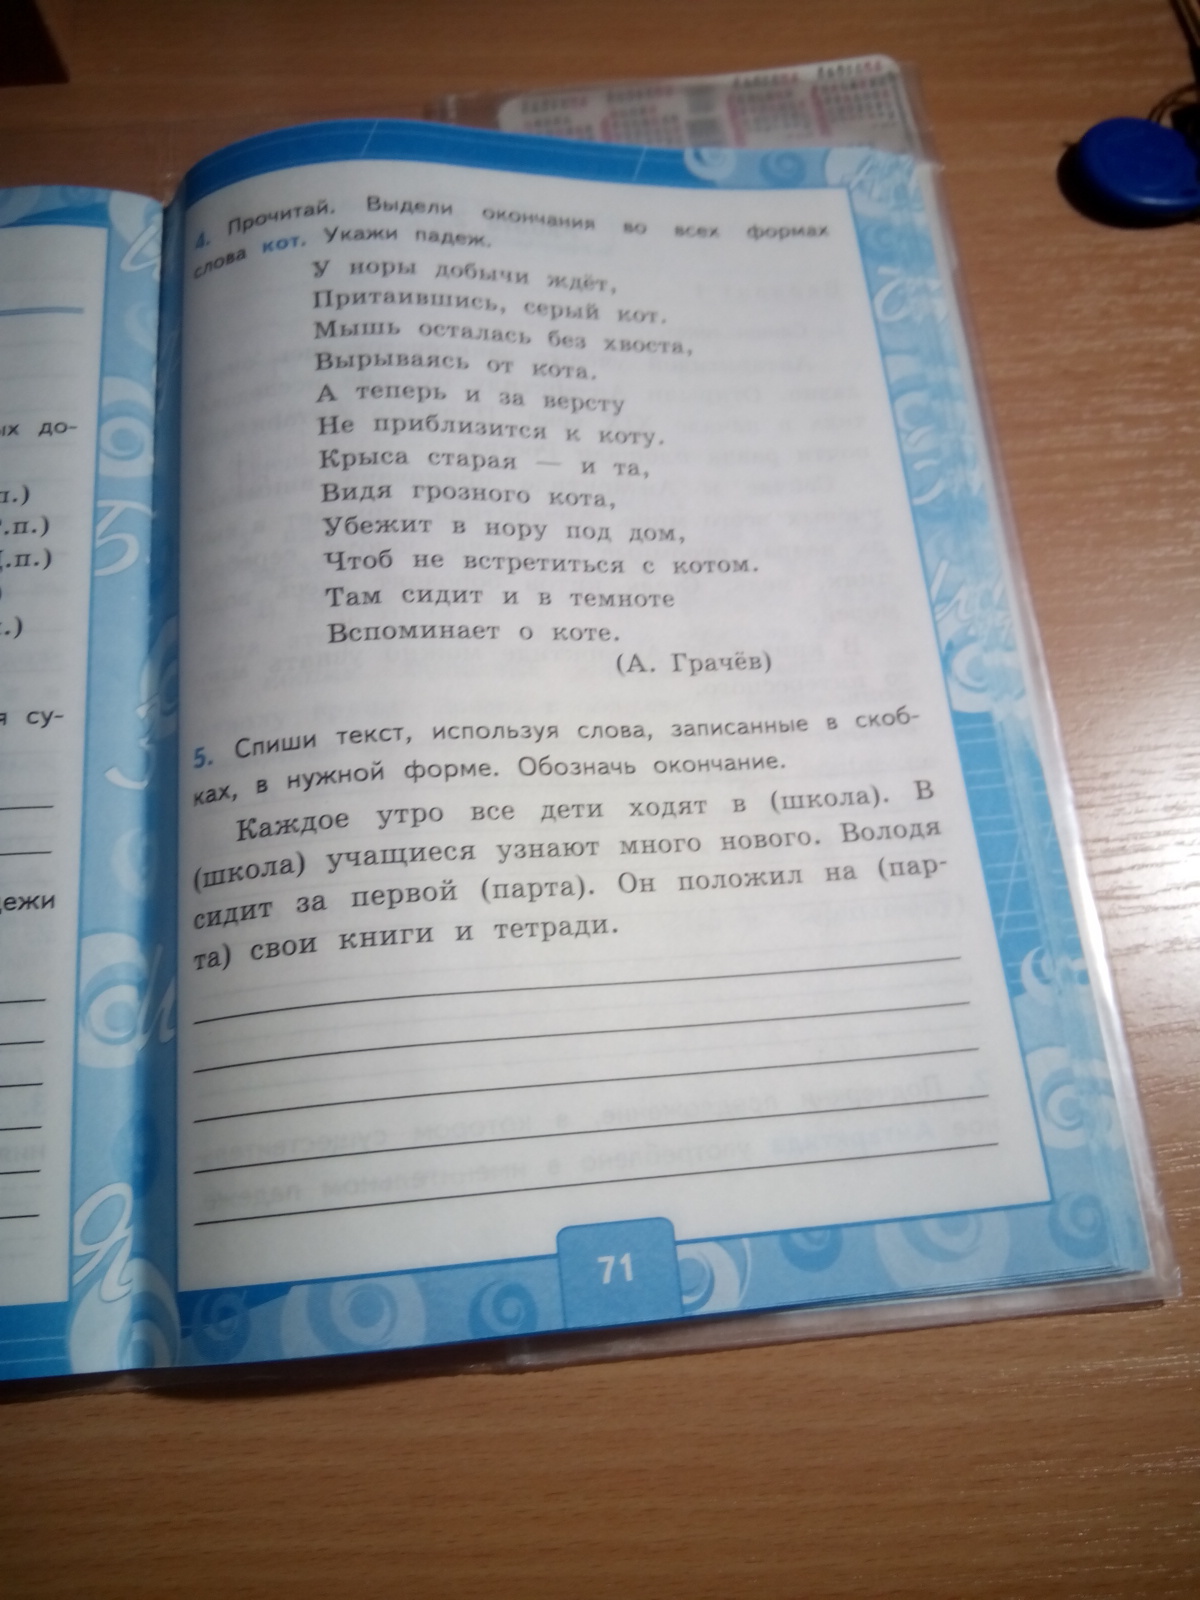 4. Прочитай. Выдели окончания во всех формах
слова кот. Укажи падеж.
У норы добычи ждёт,
Притаившись, серый кот.
Мышь осталась без хвоста,
Вырываясь от кота.
А теперь и за версту
Не приблизится к коту.
Крыса старая — и та,
Видя грозного кота,
Убежит в нору под дом,
Чтоб не встретиться с котом.
Там сидит и в темноте
Вспоминает о коте.
(А. Грачёв)
5. Спиши текст, используя слова, записанные в скоб-
ках, в нужной форме. Обозначь окончание.
Каждое утро все дети ходят в (школа). В
(школа) учащиеся узнают много нового. Володя
сидит за первой (парта). Он положил на (пар-
та) свои книги и тетради.
71